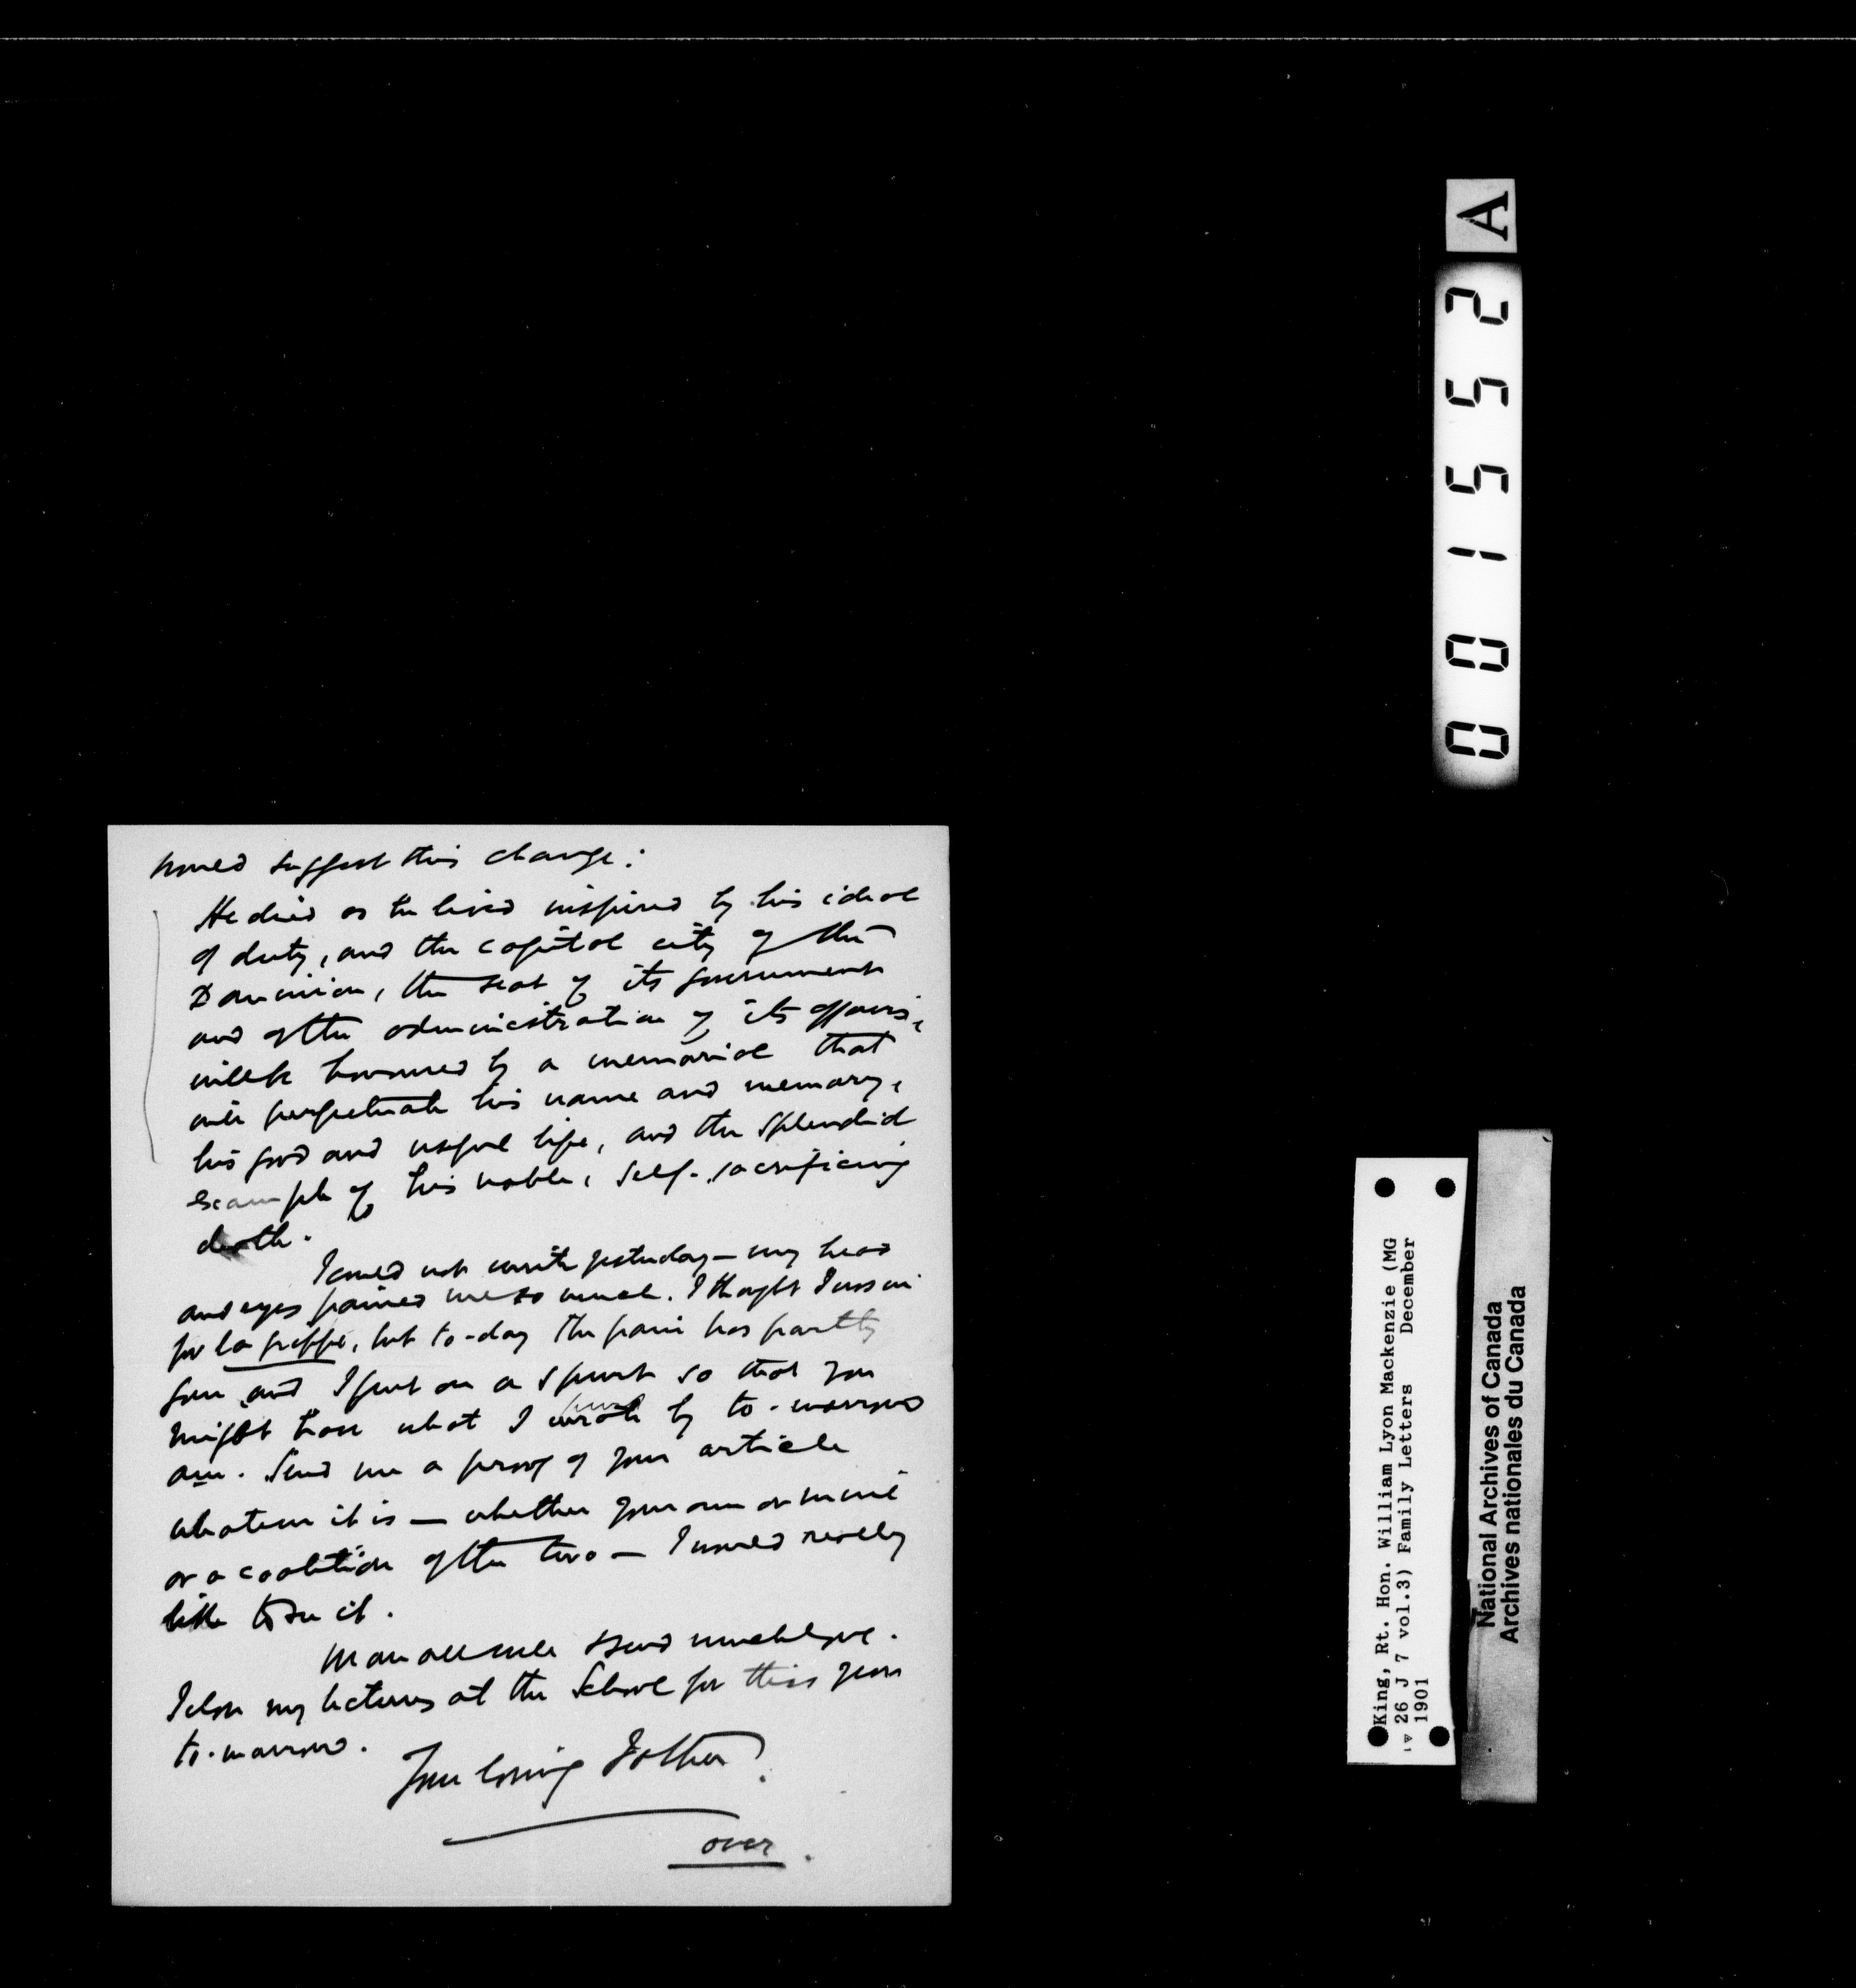 would suggest this change:
He died as he lived inspired by his ideal
of duty, and the capital city of the
Dominion, the seat of its government
and of the administration of its affairs,
will be honoured by a memorial that
will perpetuate his name and memory,
his good and useful life, and the splendid
example of his noble, self-sacrificing
death.
I could not write yesterday – my head
and eyes pained me so much. I thought I was in
for la grippe, but to-day the pain has partly
gone and I put on a spurt so that you
might have what I wrote by to-morrow
a.m. Send me a proof of your article
whatever it is – whether your own or mine
or a coalition of the two – I would really
like to see it.
We are all well & send much love.
I close my lectures at the School for this year
to-morrow.
Your loving Father.
over.
A
001552
King, Rt. Hon. William Lyon Mackenzie (MG
26 J 7 vol.3) Family Letters December
1901
National Archives of Canada
Archives nationales du Canada